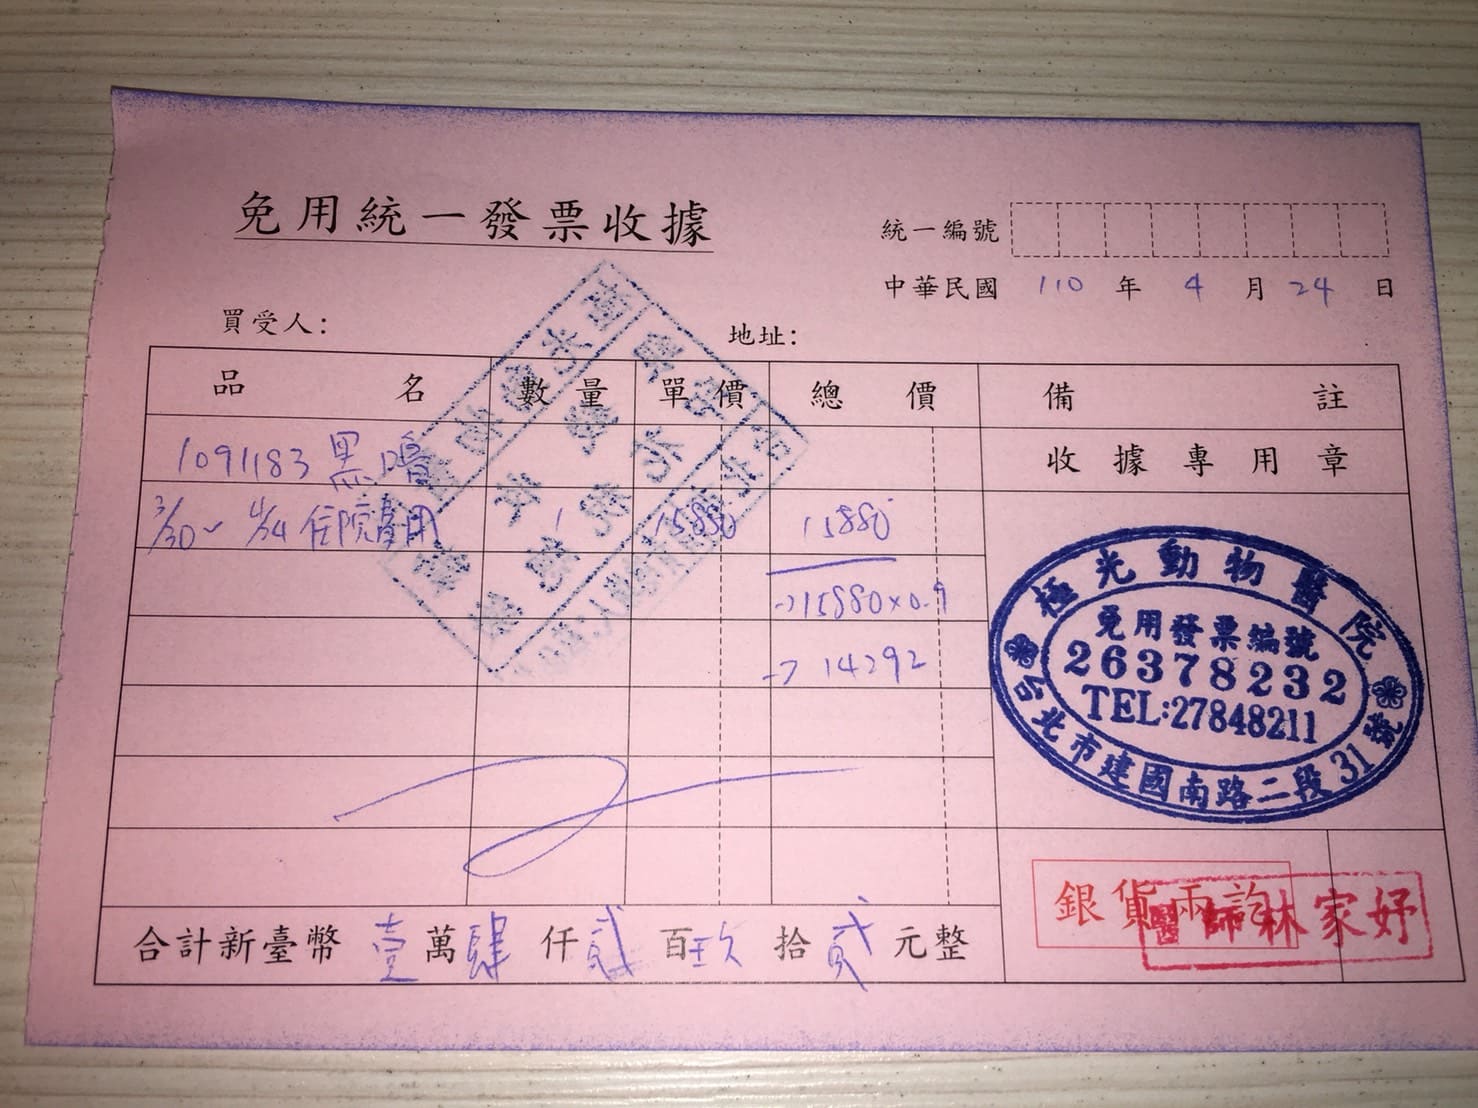 免用統一發票收據
統一編號
中華民國 110 年 4 月 24 日
買受人：
地址：
品名 數量 單價 總價 備註
1091183 黑嚕
收據專用章
3/30~ 4/24 住院費用 1 15880 15880
→15880×0.9
→ 14292
極光動物醫院
免用發票編號
26378232
TEL:27848211
台北市建國南路二段31號
銀貨兩訖
醫師林家妤
合計新臺幣 壹萬肆仟貳百玖拾貳元整